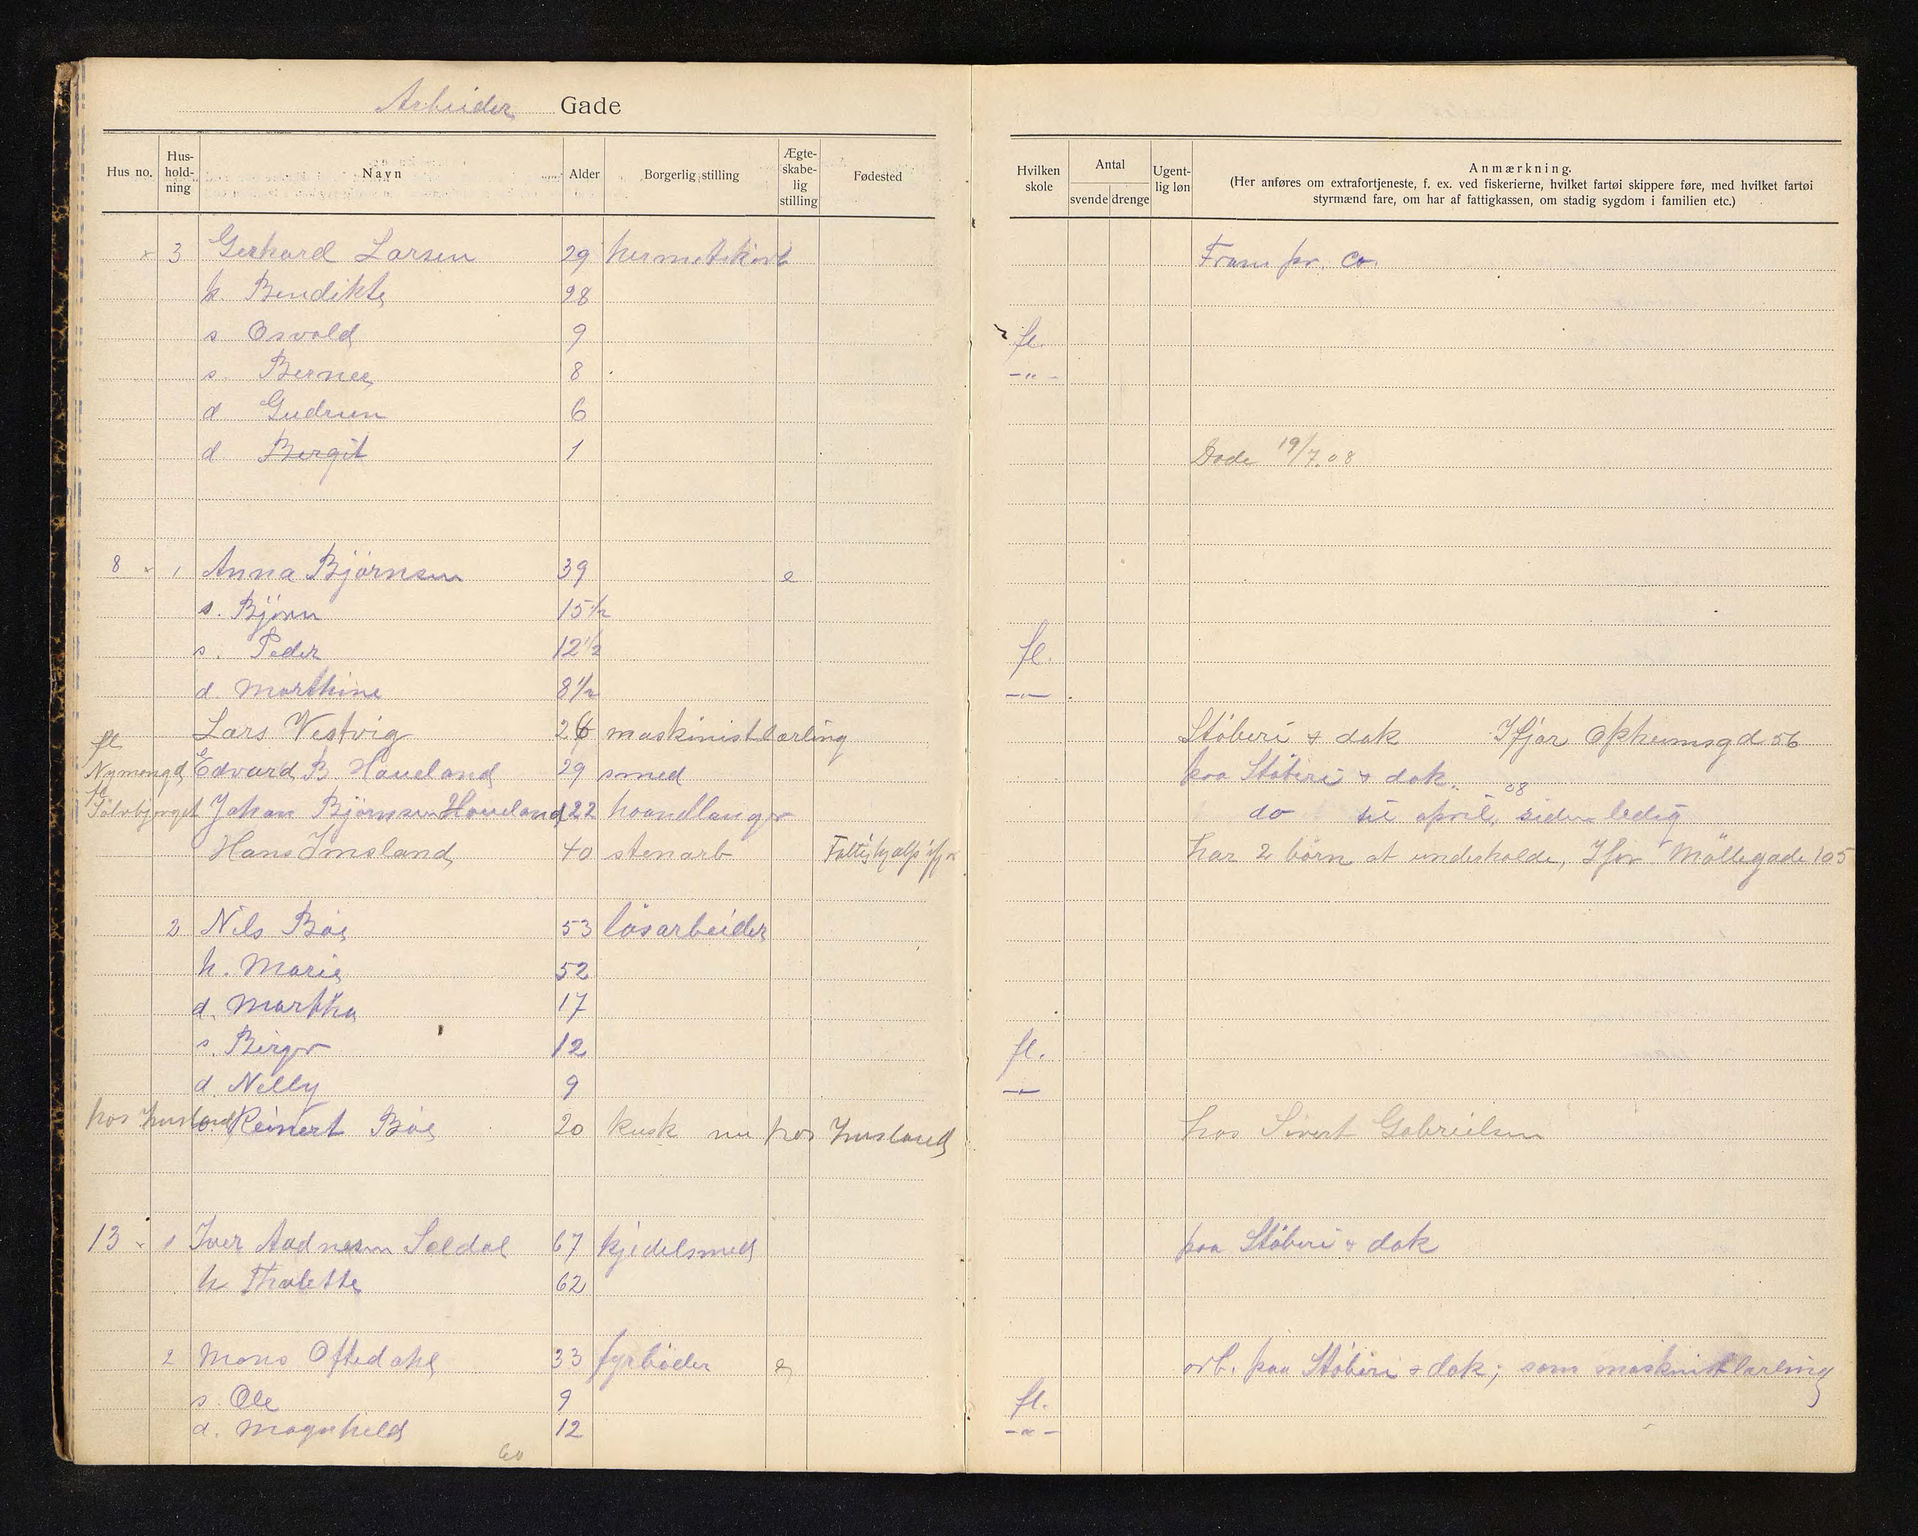 Arbeider Gade
Hus no. Hus-hold-ning Navn Alder Borgerlig stilling Ægte-skabe-lig stilling Fødested Hvilken skole Antal svende drenge Ugent-lig løn Anmærkning.
(Her anføres om extrafortjeneste, f. ex. ved fiskerierne, hvilket fartøi skippere føre, med hvilket fartøi styrmænd fare, om har af fattigkassen, om stadig sygdom i familien etc.)
3 Gerhard Larsen 29 hermetikarb Fram pr. Co.
h. Bendikte 28
s Osvald 9 fl.
s. Bernee 8 -"-
d Gudrun 6
d Bergit 1 Døde 19/7.08
8 1 Anna Bjørnsen 39 e
s. Bjørn 15 1/2
s. Peder 12 1/2 fl.
d. Marthine 8 1/2 -"-
Lars Vestvig 26 maskinistlærling Støberi & dok Ifjor Opheimsgd 56
fl Nymansgd Edvard B. Haueland 29 smed paa Støberi & dok.
fl Sølvbjerget Johan Bjørnsen Haueland 22 haandlanger do til april 08, siden ledig
Hans Imsland 40 stenarb Fattighjælp ifjor har 2 børn at underholde, Ifjor Møllegade 105
2 Nils Bøe 53 løsarbeider
h. Marie 52
d. Martha 17
s. Birger 12 fl.
d. Nelly 9 -"-
hos Imsland s. Reinert Bøe 20 kusk nu hos Imsland hos Sivert Gabrielsen
13 1 Iver Aadnesen Seldal 67 kjedelsmed paa Støberi & dok
h Thalette 62
2 Mons Oftedahl 33 fyrbøder e arb. paa Støberi & dok; som maskinistlærling
s. Ole 9 fl.
d. Magnhild 12 -"-
60